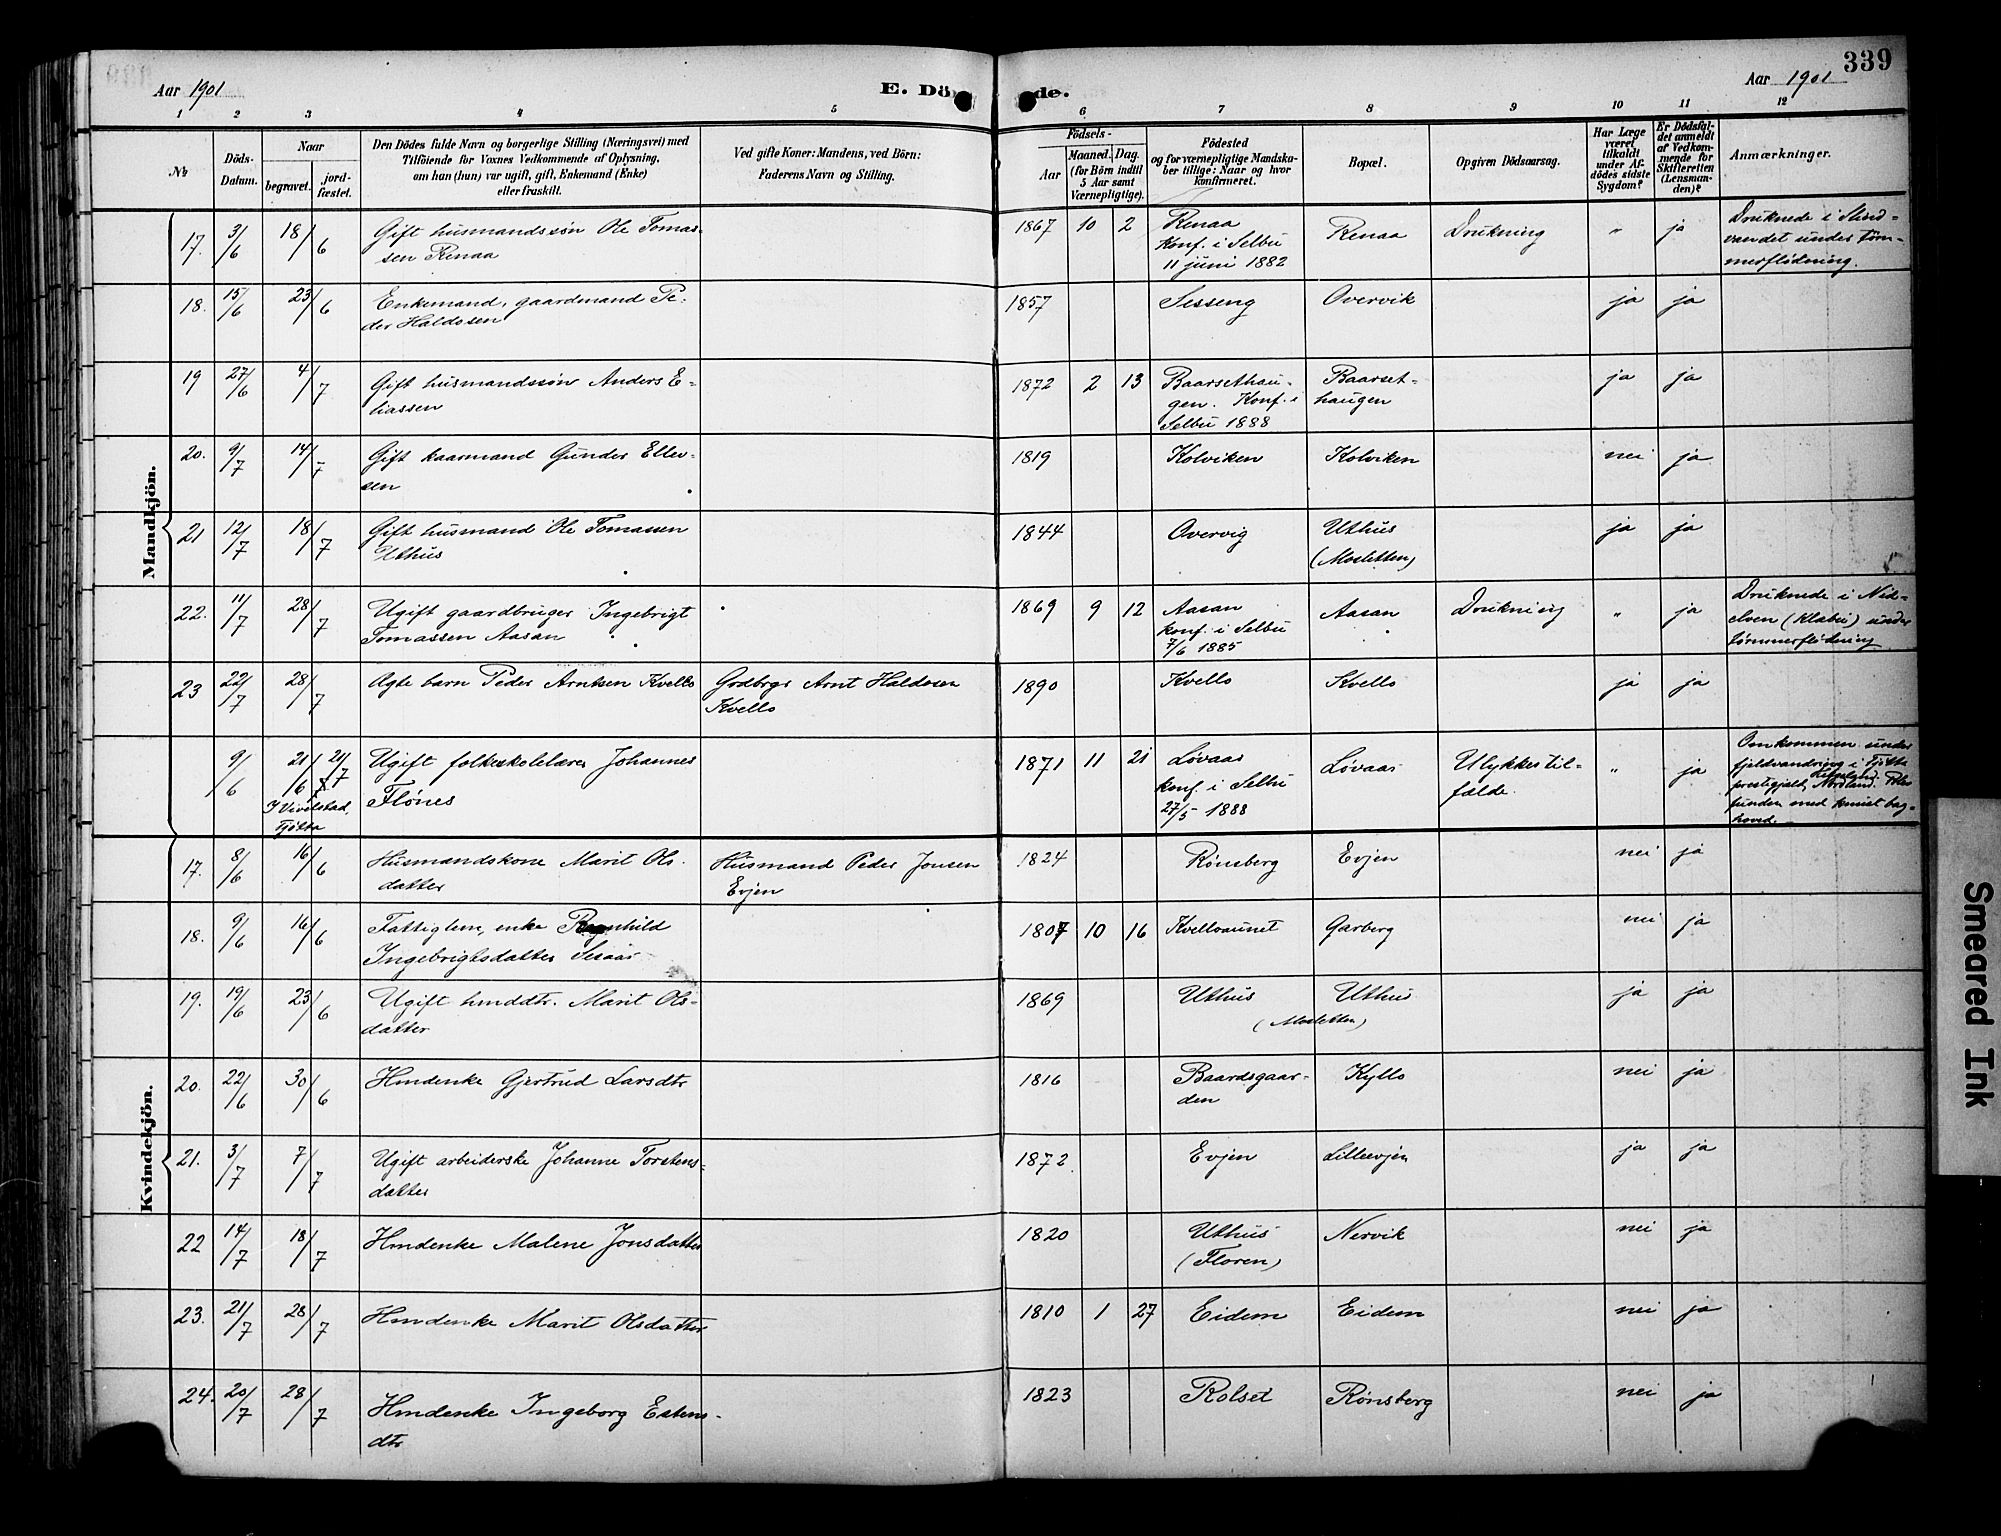 339
Aar 1901
E. Dö
de.
Aar 1901
1 2 3 4 5 6 7 8 9 10 11 12
№
Döds-
Datum.
Naar
begravet.
jord-
fæstet.
Den Dödes fulde Navn og borgerlige Stilling (Næringsvei) med
Tilföiende for Voxnes Vedkommende af Oplysning,
om han (hun) var ugift, gift, Enkemand (Enke)
eller fraskilt.
Ved gifte Koner: Mandens, ved Börn:
Faderens Navn og Stilling.
Födsels-
Aar
Maaned. Dag.
(for Börn indtil
5 Aar samt
Værnepligtige).
Födested
og for værnepligtige Mandska-
ber tillige: Naar og hvor
konfirmeret.
Bopæl.
Opgiven Dödsaarsag.
Har Læge
været
tilkaldt
under Af-
dödes sidste
Sygdom?
Er Dödsfal-
det anmeldt
af Vedkom-
mende for
Skifteretten
(Lensman-
den)?
Anmærkninger.
Mandkjön.
17. 3/6 18/6 Gift husmandssøn Ole Tomas-
sen Renaa
1867 10 2 Renaa
Konf. i Selbu
11 juni 1882
Renaa Drukning " ja Druknede i
vandet under tøm-
merflødning.
18. 15/6 23/6 Enkemand, gaardmand Pe-
der Haldosen
1857 Sesseng Overvik ja ja
19 27/6 4/7 Gift husmandssøn Anders E-
liassen
1872 2 13 Baarsethau-
gen. Konf. i
Selbu 1888
Baarset-
haugen
ja ja
20. 9/7 14/7 Gift kaarmand Gunder Ellev-
sen
1819 Kolviken Kolviken nei ja
21 12/7 18/7 Gift husmand Ole Tomassen
Uthus
1844 Overvig Uthus
(Mosletten)
ja ja
22. 11/7 28/7 Ugift gaardbruger Ingebrigt
Tomassen Aasan
1869 9 12 Aasan
konf. i Selbu
7/6 1885
Aasan Drukning " ja Druknede i Nid-
elven (Klæbu) under
tømmerflødning
23 22/7 28/7 Ægte barn Peder Arntsen Kvello Grdbrgr Arnt Haldosen
Kvello
1890 Kvello Kvello ja ja
9/6 21/6 21/7 Ugift folkeskolelærer Johannes
Flönes
I Vivelstad,
Tjøtta
1871 11 21 Løvaas
konf. i Selbu
27/5 1888
Løvaas Ulykkestil-
fælde.
" ja Omkommen under
fjeldvandring i Tjøtta
prestegjeld, Helgeland, Nordland.
funden med knust bag-
hoved.
Kvindekjön.
17. 8/6 16/6 Husmandskone Marit Ols-
datter
Husmand Peder Jonsen
Evjen
1824 Rønsberg Evjen nei ja
18. 9/6 16/6 Fattiglem, enke Ragnhild
Ingebrigtsdatter Seraas
1807 10 16 Kvelloaunet Garberg nei ja
19. 19/6 23/6 Ugift hmddtr. Marit Ols-
datter
1869 Uthus Uthus
(Mosletten)
ja ja
20. 22/6 30/6 Hmdenke Gjertrud Larsdtr
1816 Baardsgaar-
den
Kyllo nei ja
21. 3/7 7/7 Ugift arbeiderske Johanne Torstens-
datter
1872. Evjen Lilleevjen ja ja
22 14/7 18/7 Hmdenke Malene Jonsdatter
1820 Uthus
(Floren)
Nervik nei ja
23. 21/7 28/7 Hmdenke Marit Olsdatter
1810 1 27 Eidem Eidem nei ja
24. 20/7 28/7 Hmdenke Ingeborg Estens-
dtr
1823 Rolset Rønsberg nei ja
Smeared Ink